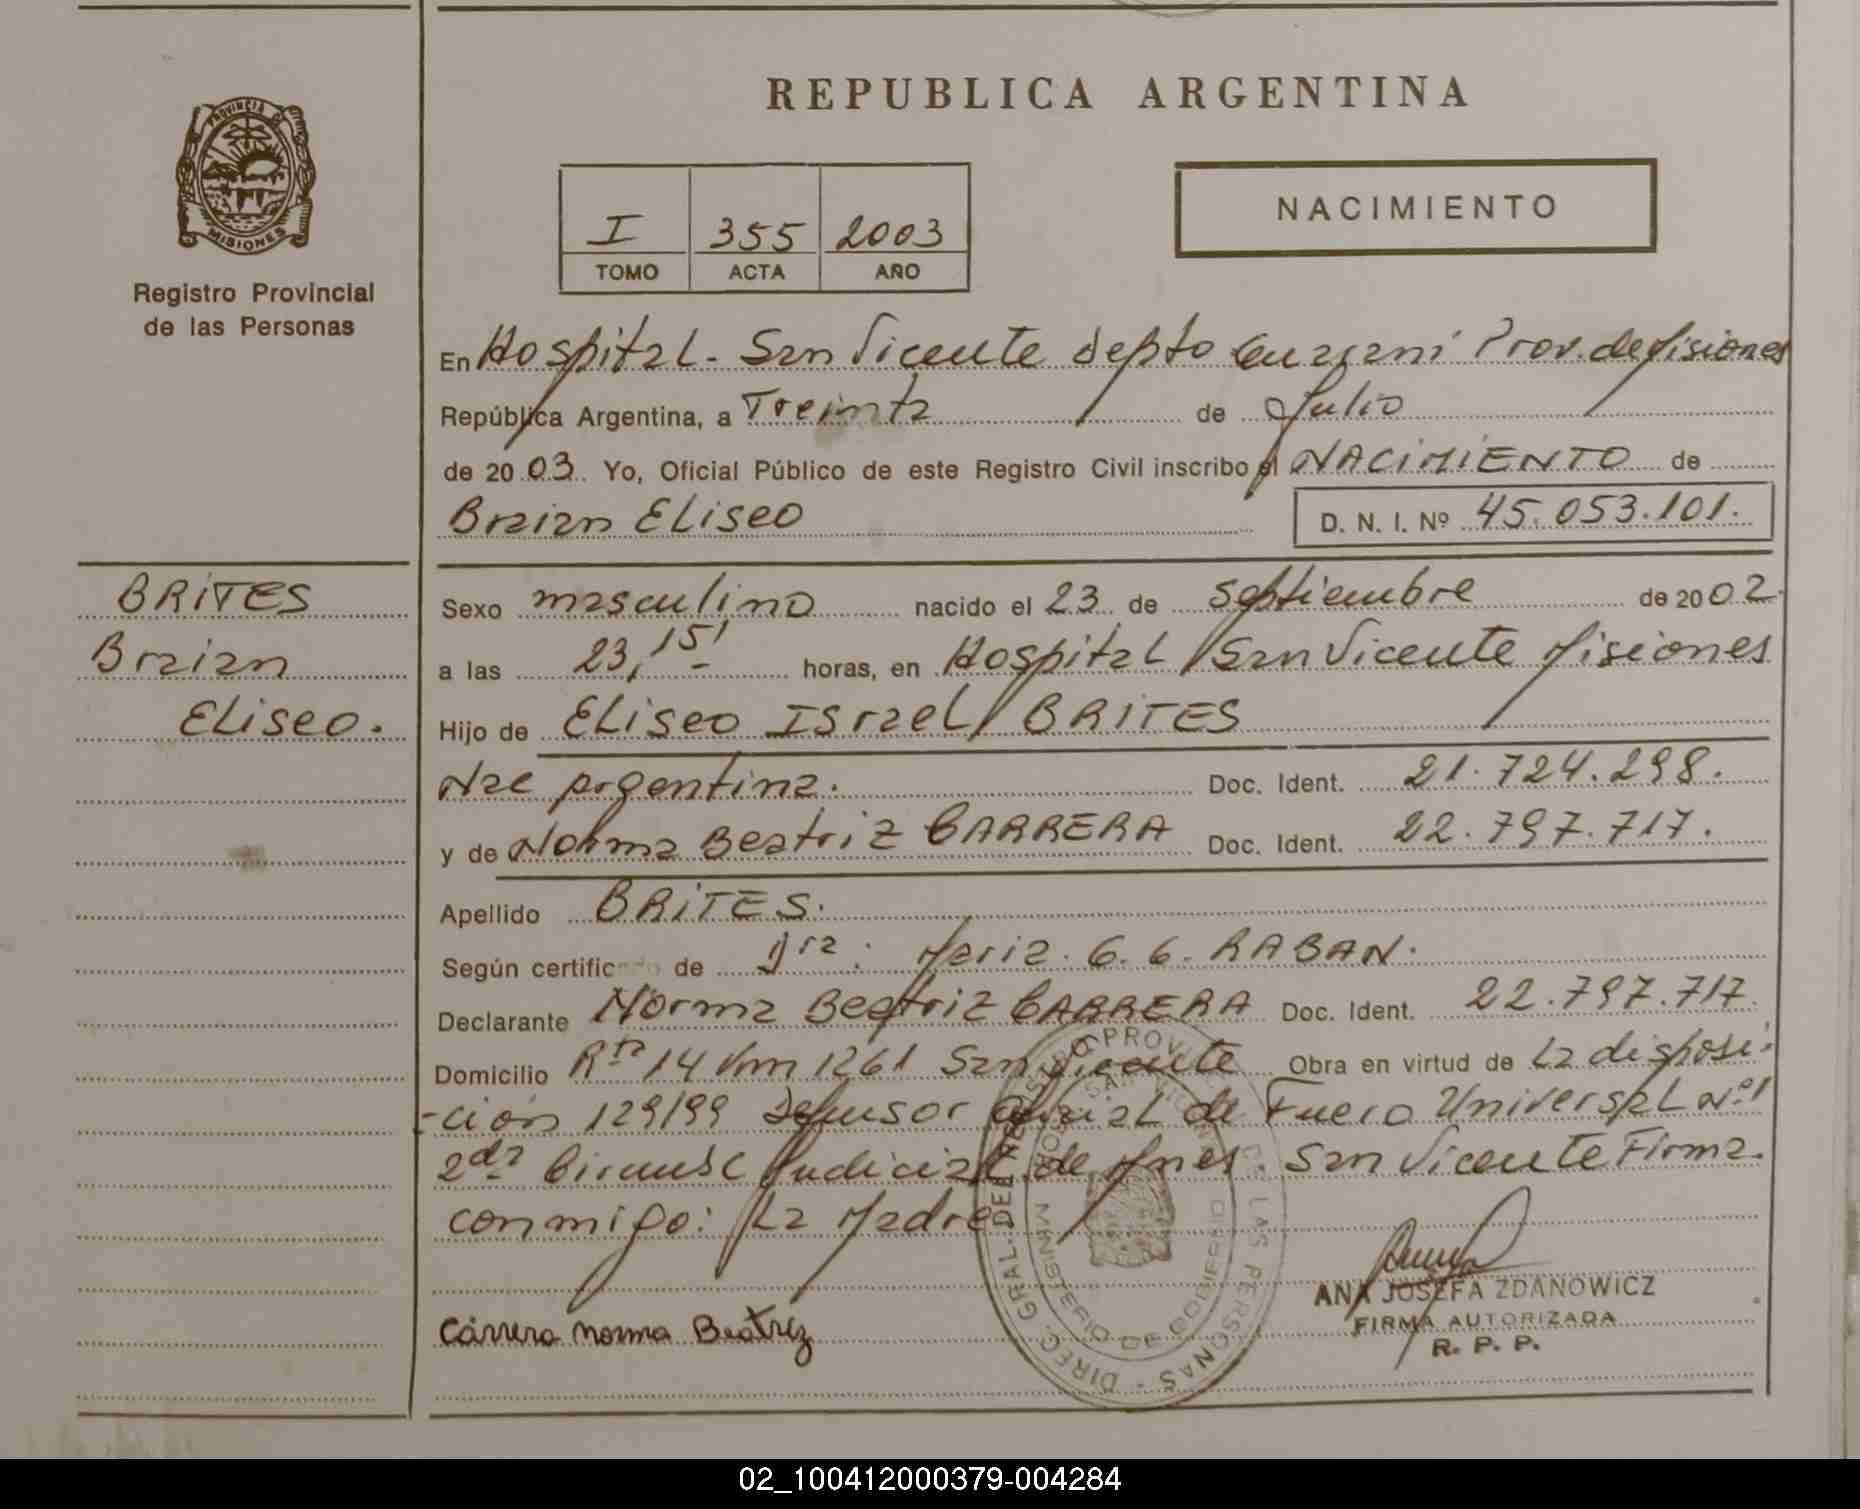 REPUBLICA ARGENTINA
PROVINCIA DE
MISIONES
Registro Provincial
de las Personas
I 355 2003
TOMO ACTA AÑO
NACIMIENTO
En Hospital - San Vicente depto Guarani Prov. de Misiones
República Argentina, a Treinta de Julio
de 20 03. Yo, Oficial Público de este Registro Civil inscribo el NACIMIENTO de
Braian Eliseo D. N. I. Nº 45.053.101.
BRITES
Braian
Eliseo.
Sexo masculino nacido el 23 de Septiembre de 20 02.
a las 23,15' horas, en Hospital San Vicente Misiones
Hijo de Eliseo Israel BRITES
Nac argentina. Doc. Ident. 21.724.298.
y de Norma Beatriz CARRERA Doc. Ident. 22.797.717.
Apellido BRITES.
Según certificado de Dra: Maria. G. G. RABAN.
Declarante Norma Beatriz CARRERA Doc. Ident. 22.797.717.
Domicilio Rta 14 Km 1261 San Vicente Obra en virtud de La disposi-
-ción 129/99 Defensor Oficial de Fuero Universal Nº1
2da Circunsc Judicial de Mnes San Vicente Firma
conmigo: La Madre
Carrera Norma Beatriz
ANA JOSEFA ZDANOWICZ
FIRMA AUTORIZADA
R. P. P.
DIREC. GRAL. DEL REGISTRO PROV. DE LAS PERSONAS
MINISTERIO DE GOBIERNO
02_100412000379-004284